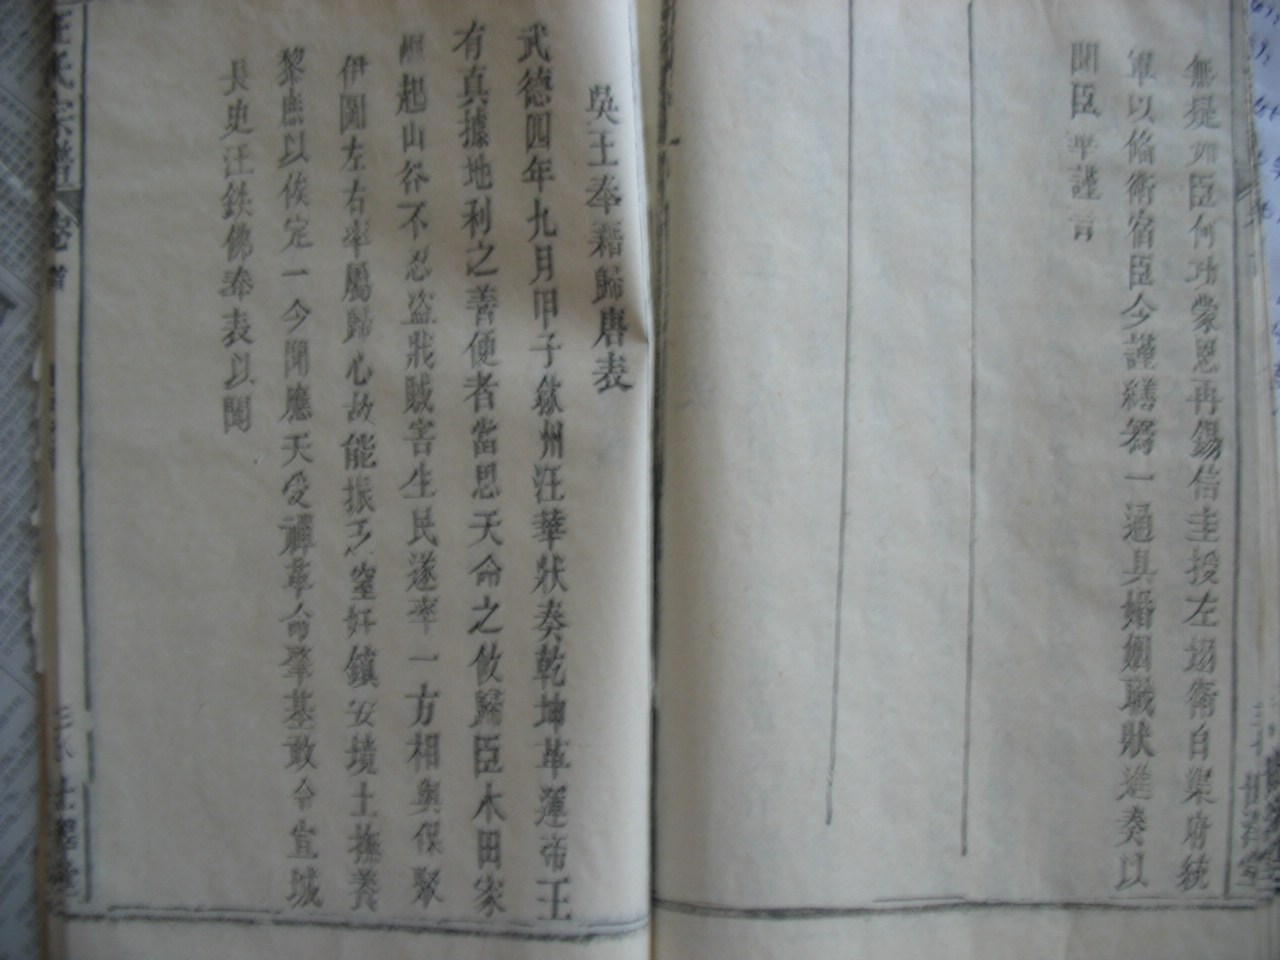 無疑如臣何功蒙恩再錫信圭授左翊衛白渠府統
軍以偹衛宿臣今謹繕寫一通具婚姻職狀進奏以
聞臣華謹言
吳王奉藉歸唐表
武德四年九月甲子歙州汪華狀奏乾坤革運帝王
有真據地利之善便者當思天命之攸歸臣本田家
崛起山谷不忍盗戕賊害生民遂率一方相與保聚
伊閭左右率屬歸心故能振乏窒奸鎮安境土撫養
黎庶以俟定一今聞應天受禪革命肇基敢令宣城
長史汪鉄佛奉表以聞
汪氏宗譜 卷首